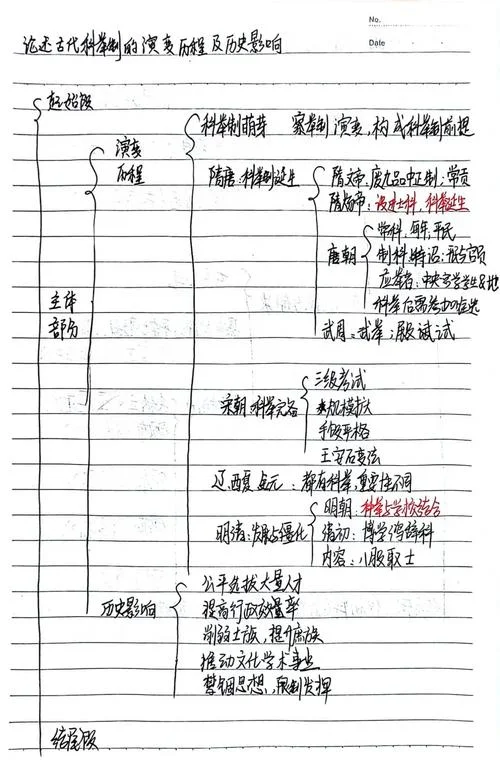 No.
Date
论述古代科举制的演变历程及历史影响
起始段
主体部分
演变历程
科举制萌芽 察举制演变,构成科举制前提
隋唐:科举制诞生
隋文帝:废九品中正制;常贡
隋炀帝:设进士科,科举诞生
唐朝
常科:每年,平民
制科:特诏:
应举者:中央官学学生&地
科举后需考
武周:武举;殿试
宋朝:科举完备
三级考试
规模扩大
手段严格
王安石变法
辽、西夏、金元:都有科举,重要性不同
明清:发展与僵化
明朝:科举与学校结合
清初:博学鸿辞科
内容:八股取士
历史影响
公平选拔大量人才
提高行政效率
削弱士族,提升庶族
推动文化学术事业
禁锢思想,限制发挥
结尾段